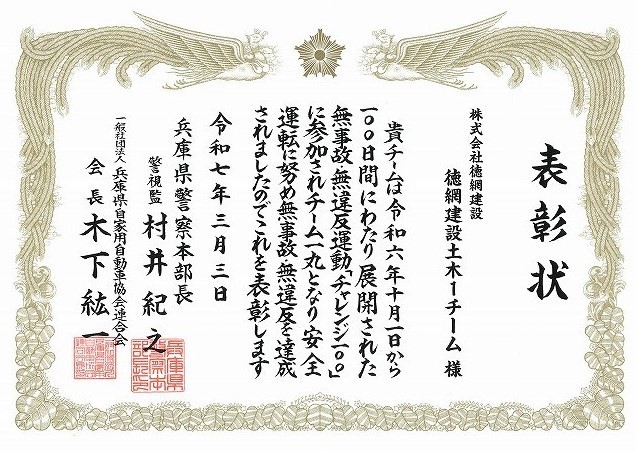 表彰状
株式会社徳網建設
徳網建設土木1チーム 様
貴チームは令和六年十月一日から
一〇〇日間にわたり展開された
無事故・無違反運動「チャレンジ一〇〇」
に参加されチーム一丸となり安全
運転に努め無事故・無違反を達成
されましたのでこれを表彰します
令和七年三月三日
兵庫県警察本部長
警視監 村井紀之
一般社団法人 兵庫県自家用自動車協会連合会
会長 木下紘一
兵庫県
警察本
部長印